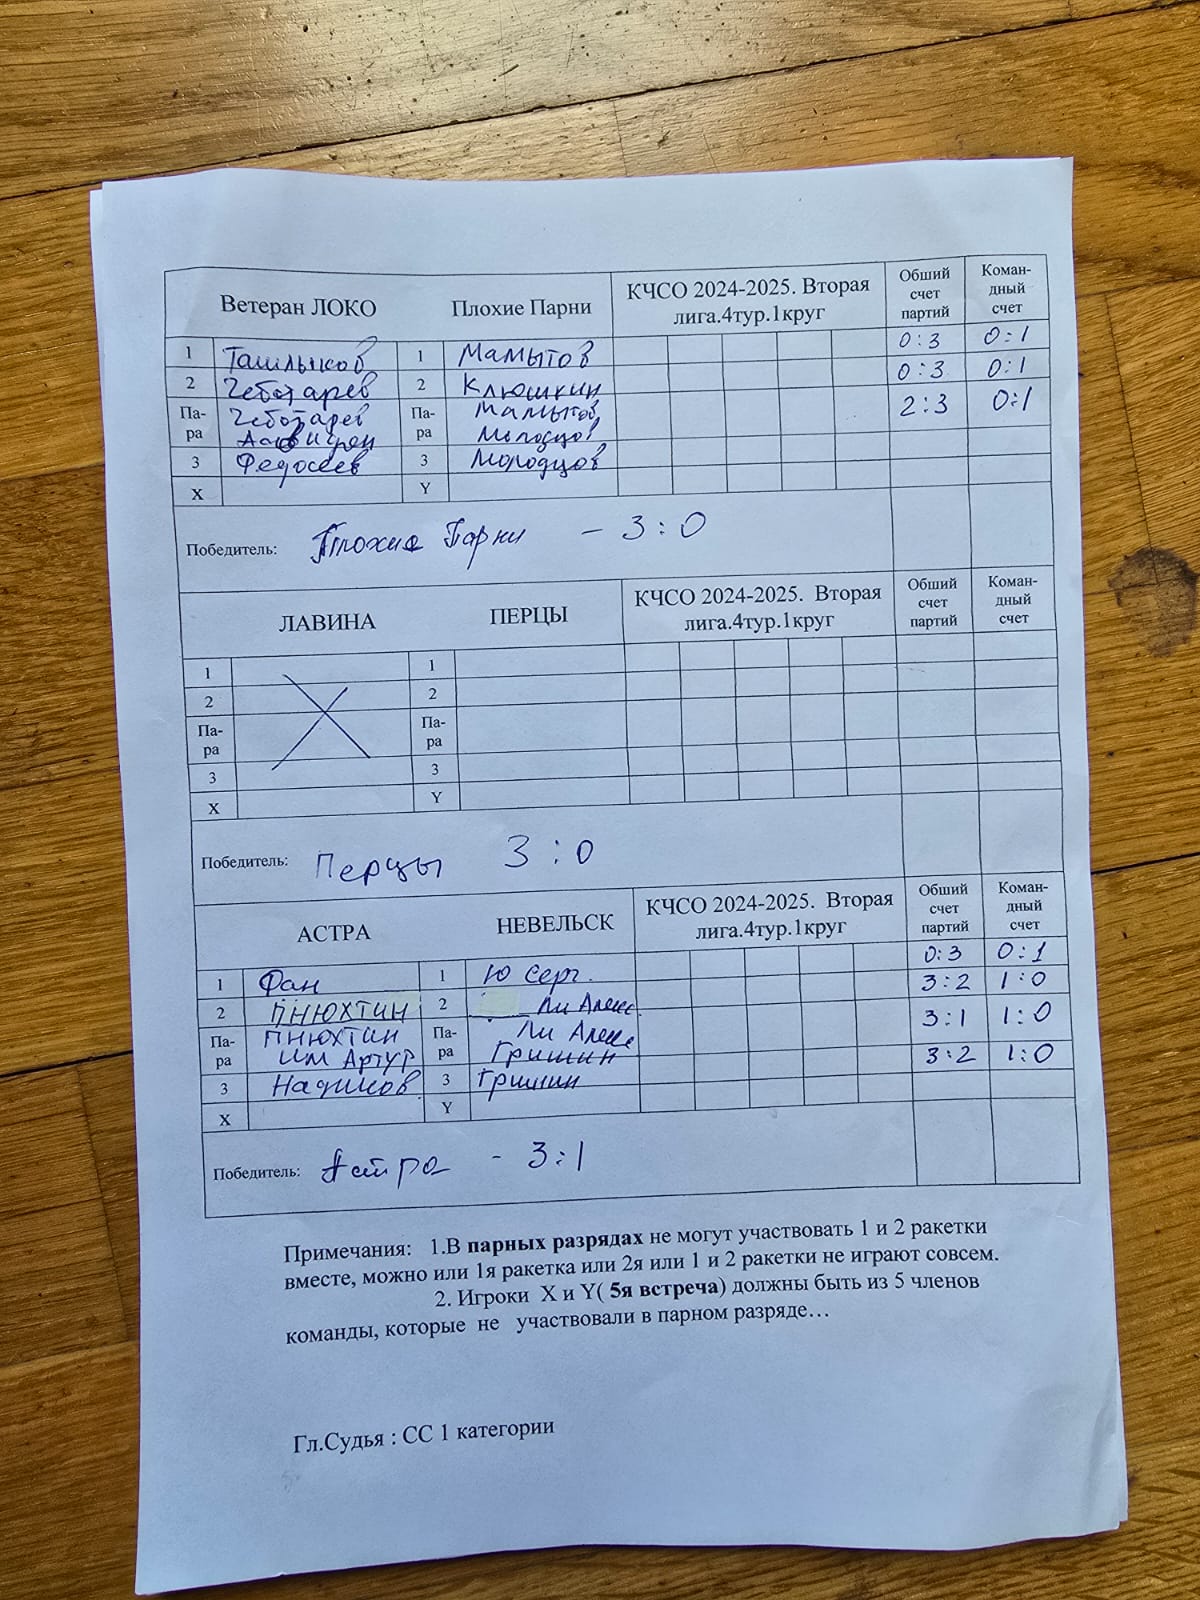 Ветеран ЛОКО Плохие Парни КЧСО 2024-2025. Вторая лига.4тур.1круг Обший счет партий Коман-дный счет
1 Ташлыков 1 Мамытов 0:3 0:1
2 Чеботарев 2 Клюшкин 0:3 0:1
Па-ра Чеботарев Па-ра Мамытов 2:3 0:1
Молодцов
3 Федосеев 3 Молодцов
X Y
Победитель: Плохие Парни – 3:0
ЛАВИНА ПЕРЦЫ КЧСО 2024-2025. Вторая лига.4тур.1круг Обший счет партий Коман-дный счет
1 1
2 2
Па-ра Па-ра
3 3
X Y
Победитель: Перцы 3:0
АСТРА НЕВЕЛЬСК КЧСО 2024-2025. Вторая лига.4тур.1круг Обший счет партий Коман-дный счет
1 Фан 1 Ю Серг. 0:3 0:1
2 ПНЮХТИН 2 Ли Алекс. 3:2 1:0
Па-ра ПНЮХТИН Па-ра Ли Алекс 3:1 1:0
Им Артур Гришин
3 3 Гришин 3:2 1:0
X Y
Победитель: Астра - 3:1
Примечания: 1.В парных разрядах не могут участвовать 1 и 2 ракетки
вместе, можно или 1я ракетка или 2я или 1 и 2 ракетки не играют совсем.
2. Игроки X и Y( 5я встреча) должны быть из 5 членов
команды, которые не участвовали в парном разряде…
Гл.Судья : СС 1 категории